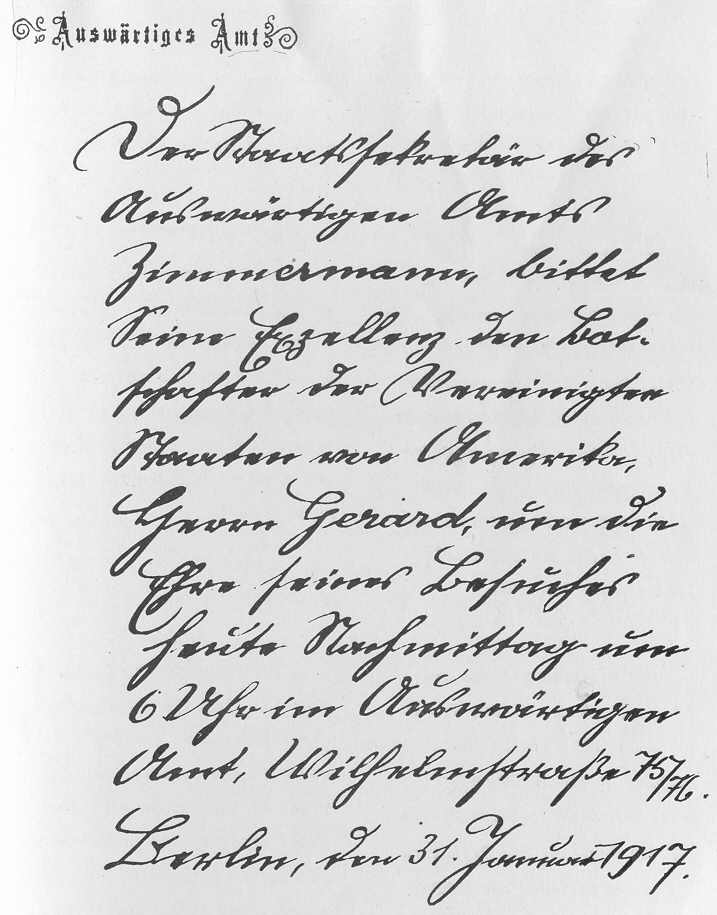 Auswärtiges Amt
Der Staatssekretär des
Auswärtigen Amts
Zimmermann, bittet
Seine Exzellenz den Bot-
schafter der Vereinigten
Staaten von Amerika,
Herrn Gerard, um die
Ehre seines Besuches
heute Nachmittag um
6 Uhr im Auswärtigen
Amt, Wilhelmstraße 75/76.
Berlin, den 31. Januar 1917.